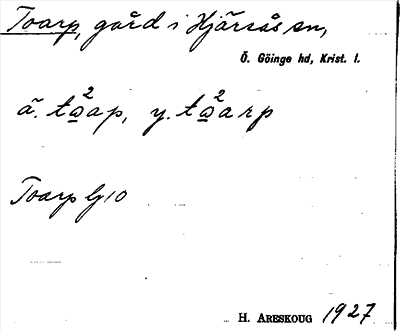 Toarp, gård i Hjärsås sn,
Ö. Göinge hd, Krist. l.
ä. tω²ap, y. tω²arp
Toarp G10
H. ARESKOUG 1927